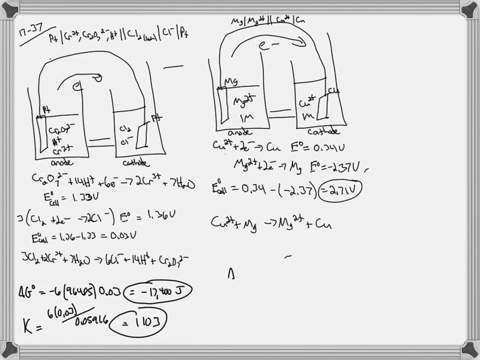 17-37
Pt | Cr³⁺, Cr₂O₇²⁻, H⁺ || Cl₂ | Cl⁻ | Pt
e⁻
Pt
Pt
Cr₂O₇²⁻
H⁺
Cr³⁺
Cl₂
Cl⁻
anode
cathode
Cr₂O₇²⁻ + 14H⁺ + 6e⁻ → 2Cr³⁺ + 7H₂O
E° = 1.33V
3(Cl₂ + 2e⁻ → 2Cl⁻) E° = 1.36V
E°cell = 1.36 - 1.33 = 0.03V
3Cl₂ + 2Cr³⁺ + 7H₂O → 6Cl⁻ + 14H⁺ + Cr₂O₇²⁻
ΔG° = -6(96485)0.03 = -17,400 J
K = 6(0.03)/0.05916 = 1103
Mg | Mg²⁺ || Cu²⁺ | Cu
e⁻
Mg
Cu
Mg²⁺
1M
Cu²⁺
1M
anode
cathode
Cu²⁺ + 2e⁻ → Cu E° = 0.34V
Mg²⁺ + 2e⁻ → Mg E° = -2.37V
E°cell = 0.34 - (-2.37) = 2.71V
Cu²⁺ + Mg → Mg²⁺ + Cu
Δ